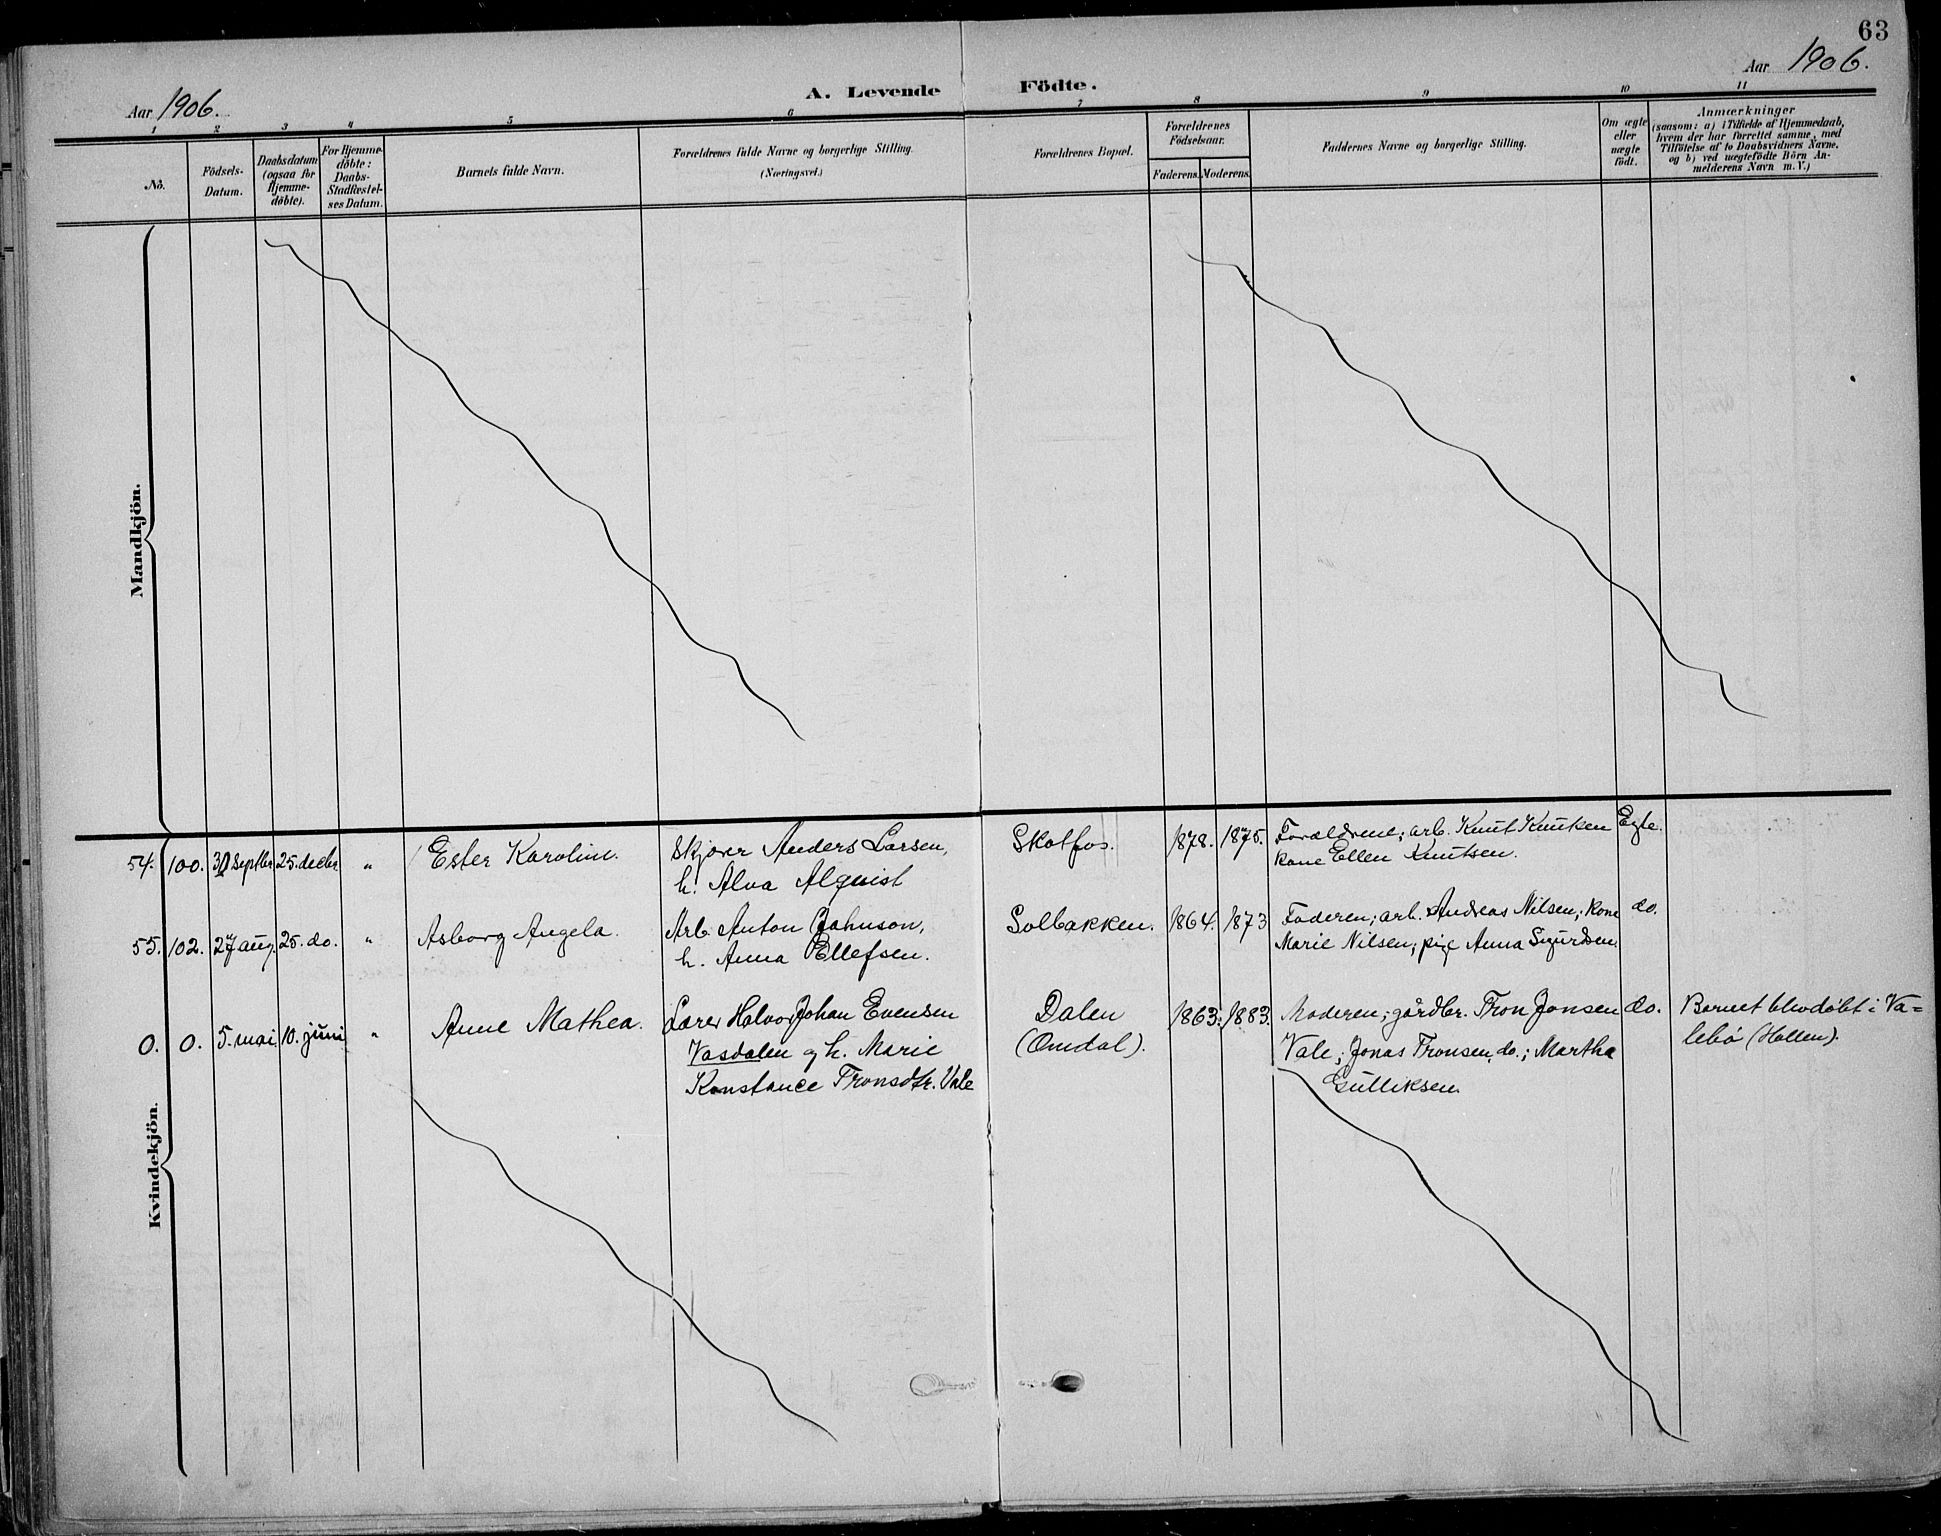 63
Aar 1906.
A. Levende Födte.
Aar 1906.
1 2 3 4 5 6 7 8 9 10 11
No.
Födsels-
Datum.
Daabsdatum
(ogsaa for
Hjemme-
döbte).
For Hjemme-
döbte:
Daabs-
Stadfæstel-
ses Datum.
Barnets fulde Navn.
Forældrenes fulde Navne og borgerlige Stilling.
(Næringsvei.)
Forældrenes Bopæl.
Forældrenes
Födselsaar.
Faderens. Moderens.
Faddernes Navne og borgerlige Stilling.
Om ægte
eller
uægte
födt.
Anmærkninger
(saasom: a) i Tilfælde af Hjemmedaab,
hvem der har forrettet samme, med
Tilföielse af to Daabsvidners Navne.
og b) ved uægtefödte Börn An-
melderens Navn m. V.)
Mandkjön.
Kvindekjön.
54. 100. 30 septbr. 25. decbr. " Ester Karoline. Skjærer Anders Larsen, Skotfos. 1878. 1875. Forældrene; arb. Knut Knutsen Egte.
h. Alva Alquist kone Ellen Knutsen.
55. 102. 27 aug. 25. do. " Asborg Angela. Arb. Anton Johnson, Solbakken. 1864. 1873 Faderen; arb. Andreas Nilsen; kone do.
h. Anna Ellefsen. Marie Nilsen; pige Anna Sigurdsen.
0. 0. 5. mai 10. juni " Anne Mathea. Lærer Halvor Johan Evensen Dalen 1863. 1883. Moderen; gårdbr. Tron Jonsen do. Barnet blev døbt i Va=
Vasdalen og h. Marie (Omdal). Vale; Jonas Tronsen, do.; Martha lebø (Hollen).
Konstance Tronsdtr. Vale Gulliksen.